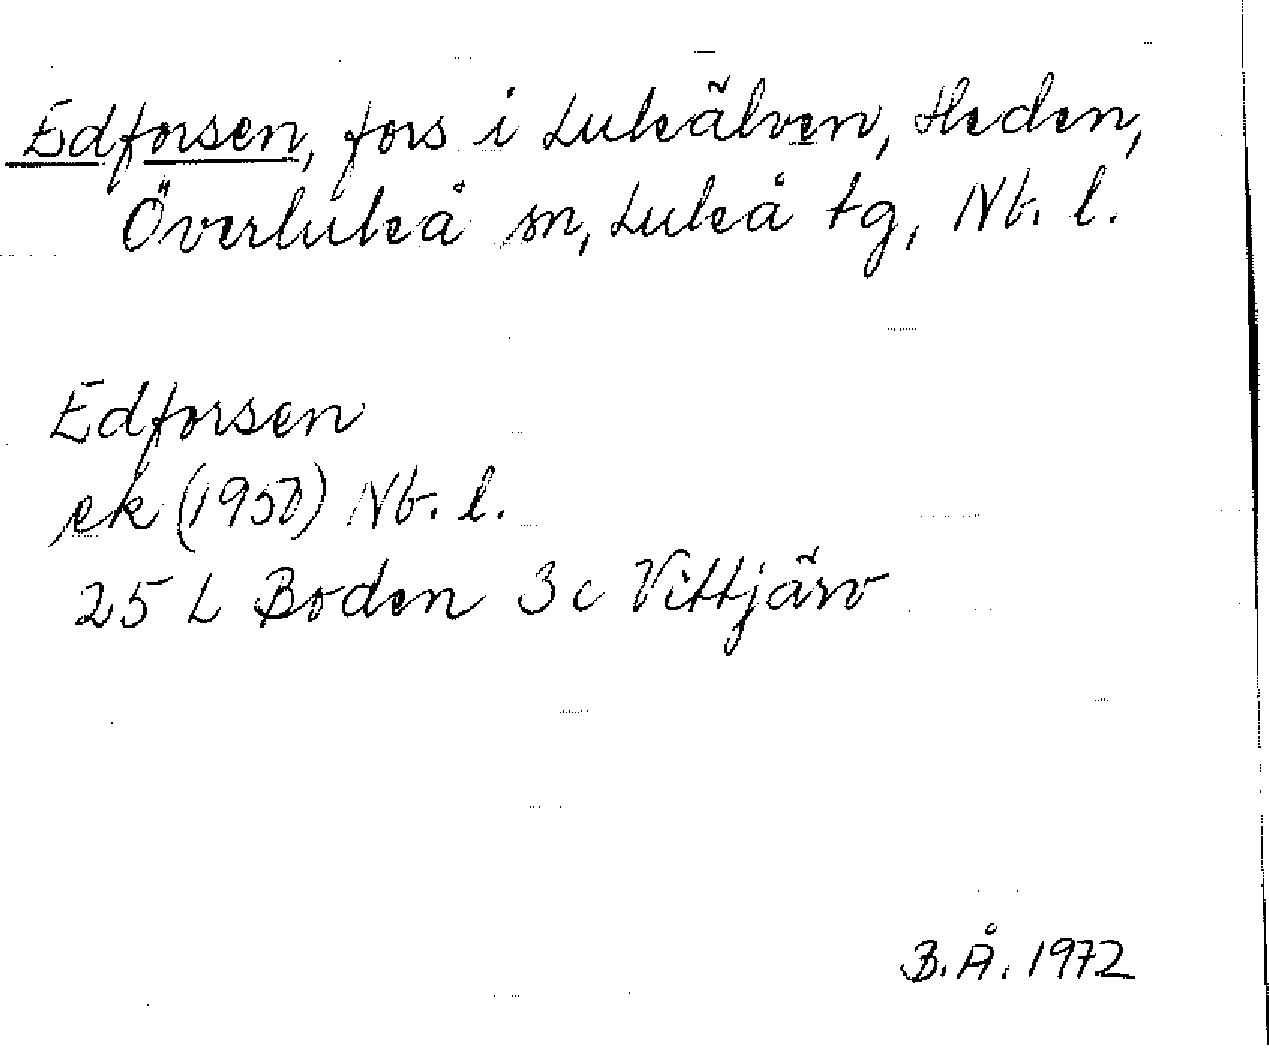 Edforsen, fors i Luleälven, Heden,
Överluleå sn, Luleå tg, Nb. l.
Edforsen
ek (1958) Nb. l.
25 L Boden 3 c Vittjärv
B.Å. 1972